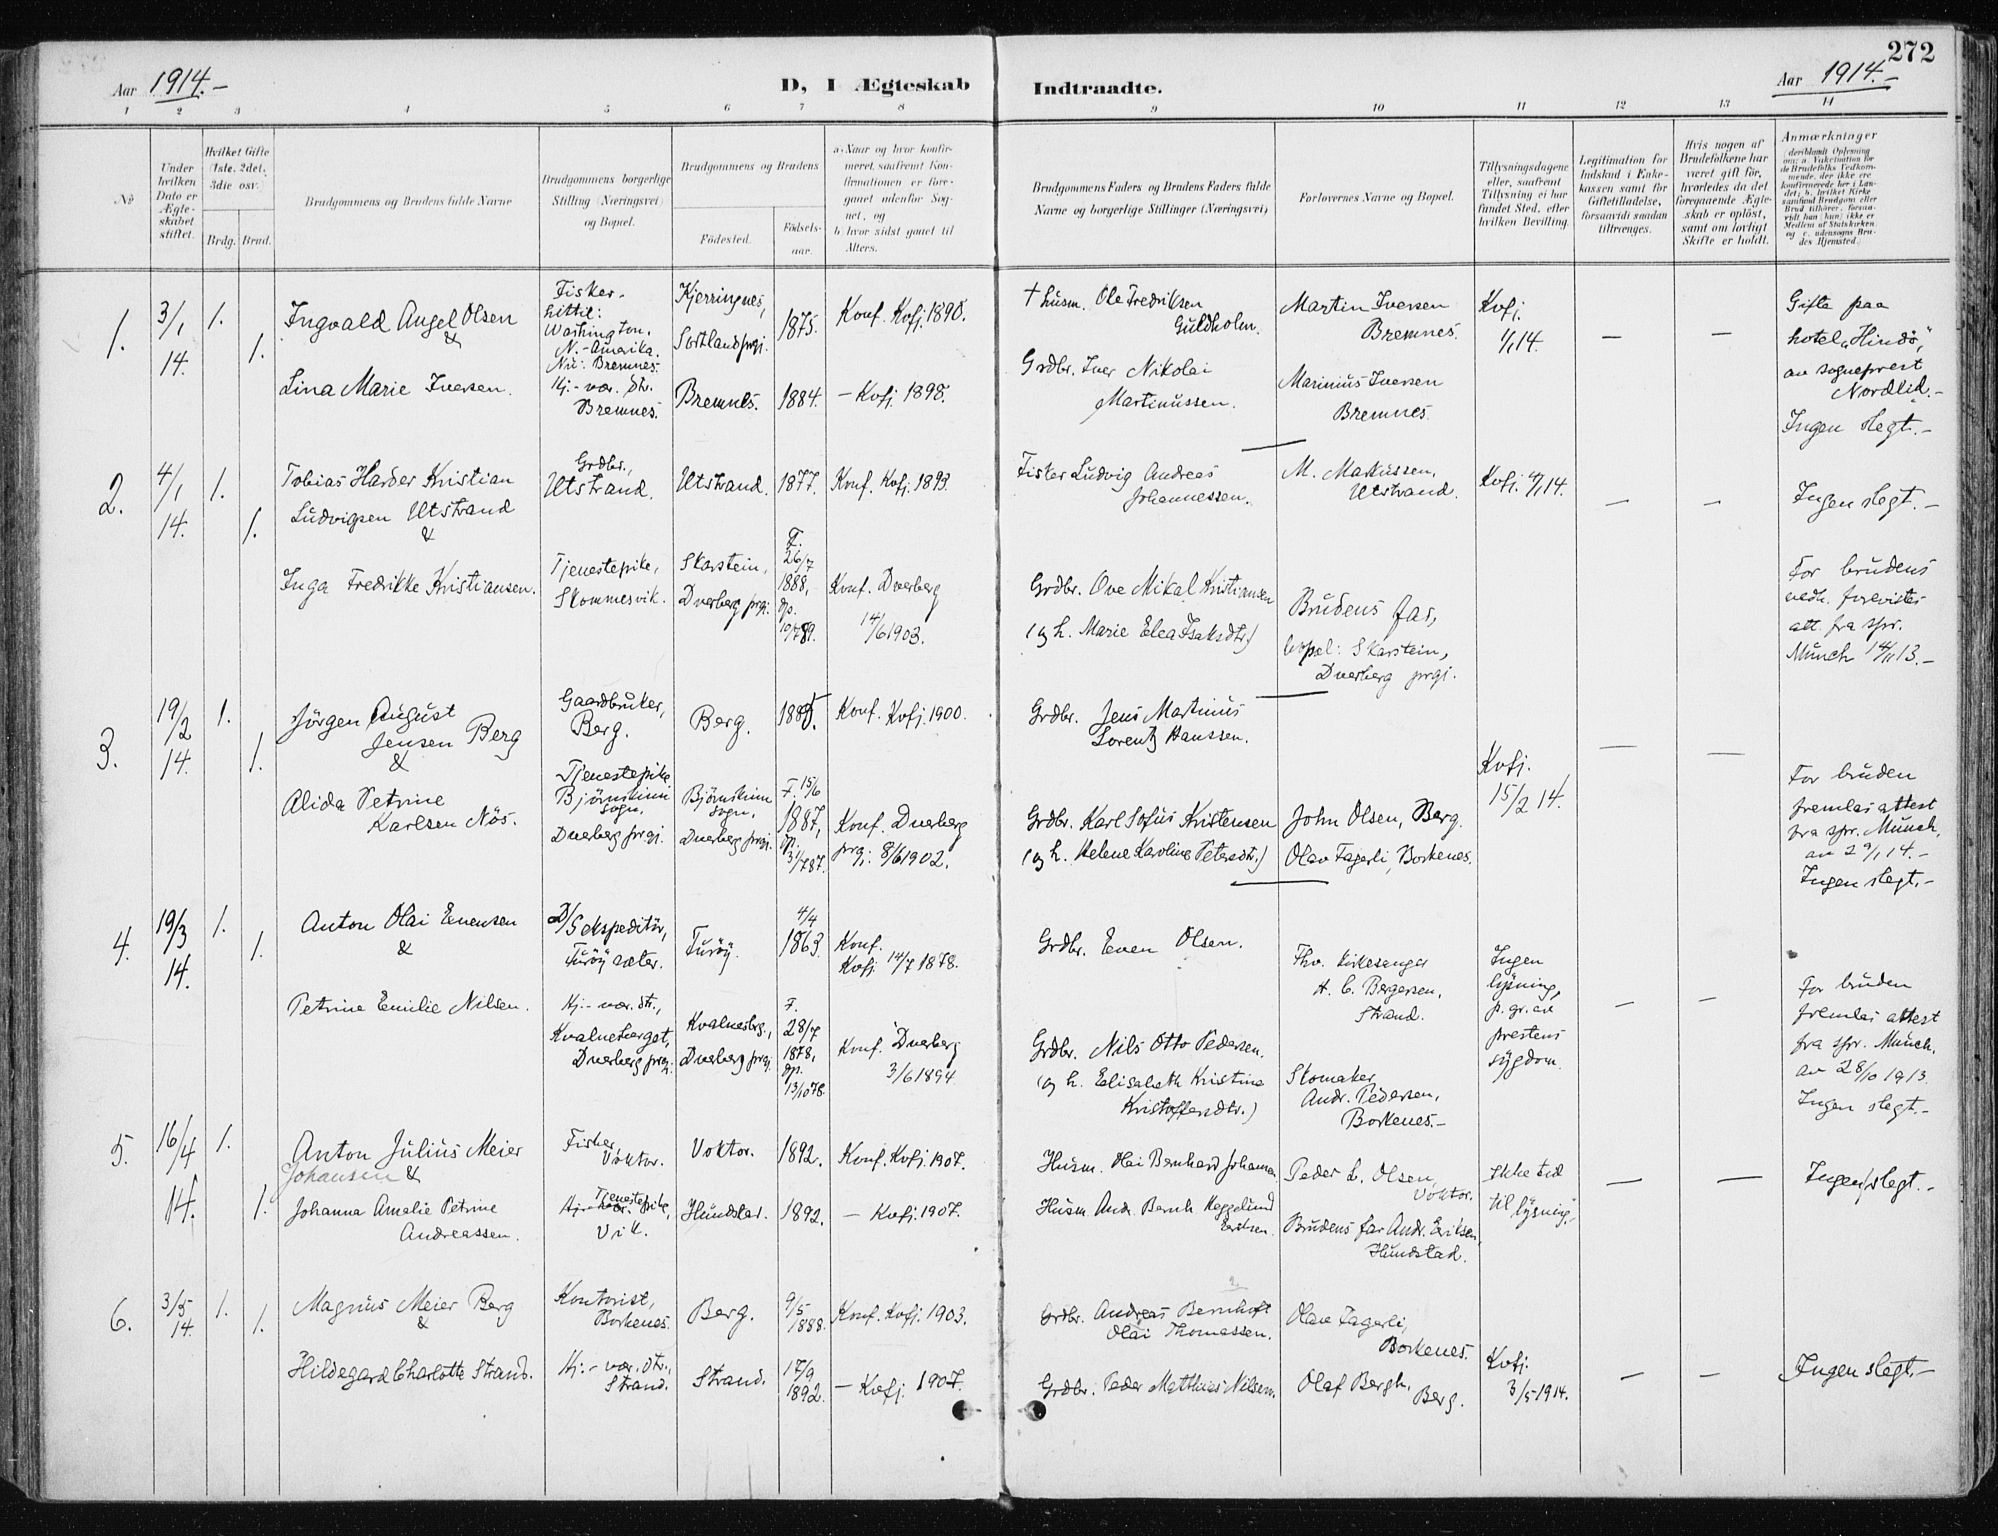 272
Aar 1914.-
D, I Ægteskab
Indtraadte.
Aar 1914.-
1 2 3 4 5 6 7 8 9 10 11 12 13 14
No
Under hvilken Dato er Ægte-skabet stiftet.
Hvilket Gifte (1ste, 2det, 3die osv.)
Brdg. Brud.
Brudgommens og Brudens fulde Navne
Brudgommens borgerlige Stilling (Næringsvei) og Bopæl.
Brudgommens og Brudens
Födested.
Födsels-aar.
a) Naar og hvor konfir-meret, saafremt Kon-firmationen er fore-gaaet udenfor Sog-net, og
b) hvor sidst gaaet til Alters.
Brudgommens Faders og Brudens Faders fulde Navne og borgerlige Stillinger (Næringsvei)
Forlovernes Navne og Bopæl.
Tillysningsdagene eller, saafremt Tillysning ei har fundet Sted, efter hvilken Bevilling.
Legitimation for Indskud i Enke-kassen samt for Giftetilladelse, forsaavidt saadan tiltrænges.
Hvis nogen af Brudefolkene har været gift för, hvorledes da det foregaaende Ægte-skab er oplöst, samt om lovligt Skifte er holdt.
Anmærkninger
(deriblandt Oplysning om: a. Vakcination for de Brudefolks Vedkom-mende, der ikke ere konfirmerede her i Lan-det; b. hvilket Kirke samfund Brudgom eller Brud tilhörer, forsaa-vidt han (hun) ikke er Medlem af Statskirken, og c. udensogns Bru-des Hjemsted.)
1.
3/1
14.
1.
1.
Ingvald Angel Olsen
&
Lina Marie Iversen.
Fisker.
hittil:
Washington.
N.-Amerika.
Nu: Bremnes.
Hj.-vær. dtr.
Bremnes.
Kjerringnes,
Sortland prgj.
Bremnes.
1875.
1884.
Konf. Kvfj. 1890.
- Kvfj. 1898.
† husm. Ole Fredriksen
Guldholm.
Grdbr. Iver Nikolai
Martinussen.
Martin Iversen
Bremnes.
Marinius Iversen
Bremnes.
Kvfj.
1/1 14.
—
—
Gifte paa
hotel „Hindö",
av sogneprest
Nordlid.-
Ingen slegt.-
2.
4/1
14.
1.
1.
Tobias Harder Kristian
Ludvigsen Utstrand
&
Inga Fredrikke Kristiansen.
Grdbr.,
Utstrand.
Tjenestepike,
Skommesvik.
Utstrand.
Skarstein,
Dverberg prgj.
1877.
F.
26/7
1888,
dp.
Konf. Kvfj. 1893.
Konf. Dverberg
14/6 1903.
Fisker Ludvig Andreas
Johannessen.
Grdbr. Ove Mikal Kristiansen
(og h. Marie Elea Isaksdtr.)
M. Markussen,
Utstrand.
Brudens far,
bopæl: Skarstein,
Dverberg prgj.
Kvfj. 4/1 14.
—
—
Ingen slegt.-
For brudens
vedk. forevistes
att. fra spr.
Münch 14/11 13.-
3.
19/2
14.
1.
1.
Jörgen August
Jensen Berg
&
Alida Petrine
Karlsen Nös.
Gaardbruker,
Berg.
Tjenestepike
Björnskinn
sogn,
Dverberg prgj.
Berg.
Björnskinn
sogn,
Dverberg prgj.
1885.
F. 15/6
1887,
dp.
31/7 87.
Konf. Kvfj. 1900.
Konf. Dverberg
prgj. 8/6 1902.
Grdbr. Jens Martinus
Lorentz Hanssen.
Grdbr. Karl Sofus Kristensen
(og h. Helene Karoline Petersdtr.)
John Olsen, Berg.
Olav Fagerli, Borkenes.
Kvfj.
15/2 14.
—
—
For bruden
fremlas attest
fra spr. Münch,
av 29/1 14.-
Ingen slegt.-
4.
19/3
14.
1.
1.
Anton Olai Evensen
&
Petrine Emilie Nilsen.
D/S ekspeditör,
Furöy sæter.
Hj.- vær. dt.,
Kvalnesberget,
Dverberg prgj.
Furöy.
Kvalnesbrg.,
Dverberg prgj.
4/4
1863.
F.
28/7
1878,
dp.
13/10 78.
Konf.
Kvfj. 14/7 1878.
Konf. Dverberg
3/6 1894.
Grdbr. Even Olsen.
Grdbr. Nils Otto Pedersen.
(og h. Elisabeth Kristine
Kristoffersdtr.)
Fhv. kirkesanger
H. C. Bergersen,
Strand.
Skomaker
Andr. Pedersen,
Borkenes.-
Ingen
lysning,
p. gr. av
prestens
sygdom.
—
—
For bruden
fremlas attest
fra spr. Münch.
av 28/10 1913.
Ingen slegt.-
5.
16/4
14.
1.
1.
Anton Julius Meier
Johansen &
Johanna Amalie Petrine
Andreassen.
Fisker,
Voktor.
Tjenestepike,
Vik.
Voktor.
Hundstad.
1892.
1892.
Konf. Kvfj. 1907.
- Kvfj. 1907.
Husm. Olai Bernhard Johansen
Husm. Andr. Bernh. Heggelund
Eriksen.
Peder L. Olsen,
Voktor.
Brudens far Andr. Eriksen,
Hundstad.
Ikke tid
til lysning.-
—
—
Ingen slegt.-
6.
3/5
14.
1.
1.
Magnus Meier Berg
&
Hildegard Charlotte Strand.
Kontorist,
Borkenes.
Hj.- vær. dtr.,
Strand.
Berg.
Strand.
9/5
1888.
17/9
1892.
Konf. Kvfj. 1903.
- Kvfj. 1907.
Grdbr. Andreas Bernhoft
Olai Thomassen.
Grdbr. Peder Matthias Nilsen.
Olav Fagerli,
Borkenes.
Olaf Bergh,
Berg.
Kvfj.
3/5 1914.
—
—
Ingen slegt.-